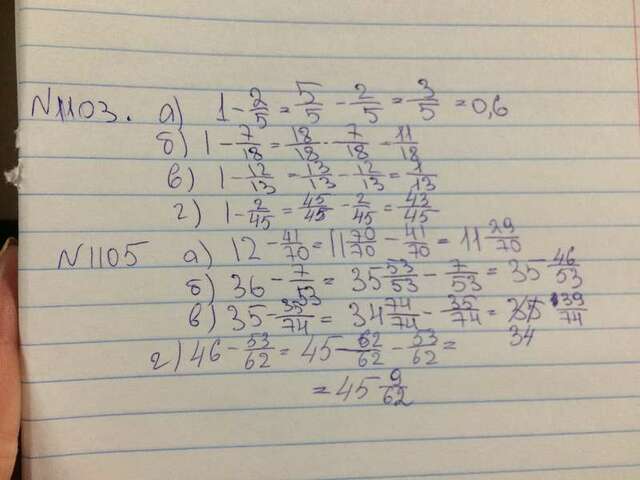 N1103. а) 1 - 2/5 = 5/5 - 2/5 = 3/5 = 0,6
б) 1 - 7/18 = 18/18 - 7/18 = 11/18
в) 1 - 12/13 = 13/13 - 12/13 = 1/13
г) 1 - 2/45 = 45/45 - 2/45 = 43/45
N1105 а) 12 - 41/70 = 11 70/70 - 41/70 = 11 29/70
б) 36 - 7/53 = 35 53/53 - 7/53 = 35 46/53
в) 35 - 35/74 = 34 74/74 - 35/74 = 34 39/74
г) 46 - 53/62 = 45 62/62 - 53/62 =
= 45 9/62